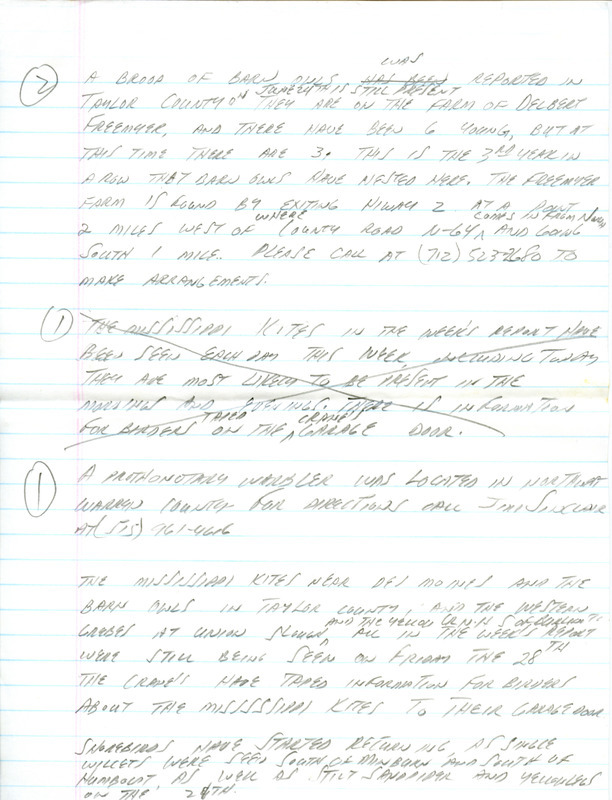 WAS
② A BROOD OF BARN OWLS HAS BEEN REPORTED IN
JUNE 24TH IS STILL PRESENT
TAYLOR COUNTY ON THEY ARE ON THE FARM OF DELBERT
FREEMYER, AND THERE HAVE BEEN 6 YOUNG, BUT AT
THIS TIME THERE ARE 3. THIS IS THE 3RD YEAR IN
A ROW THAT BARN OWLS HAVE NESTED HERE. THE FREEMYER
FARM IS FOUND BY EXITING HIWAY 2 AT A POINT
WHERE COMES IN FROM NORTH
2 MILES WEST OF COUNTY ROAD N-64 AND GOING
SOUTH 1 MILE. PLEASE CALL AT (712) 523-2680 TO
MAKE ARRANGEMENTS.
① THE MISSISSIPPI KITES IN THE WEEK'S REPORT HAVE
BEEN SEEN EACH DAY THIS WEEK, INCLUDING TODAY
THEY ARE MOST LIKELY TO BE PRESENT IN THE
MORNINGS AND EVENINGS. THERE IS INFORMATION
TAPED CRANE
FOR BIRDERS ON THE GARAGE DOOR.
① A PROTHONOTARY WARBLER WAS LOCATED IN NORTHWEST
WARREN COUNTY FOR DIRECTIONS CALL JIM SINCLAIR
AT (515) 961-
THE MISSISSIPPI KITES NEAR DES MOINES AND THE
BARN OWLS IN TAYLOR COUNTY, AND THE WESTERN
AND THE YELLOW CR N.H. S OF BURLINGTON
GREBES AT UNION SLOUGH ALL IN THE WEEK'S REPORT
WERE STILL BEING SEEN ON FRIDAY THE 28TH
THE CRANE'S HAVE TAPED INFORMATION FOR BIRDERS
ABOUT THE MISSISSIPPI KITES TO THEIR GARAGE DOOR
SHOREBIRDS HAVE STARTED RETURNING, AS SINGLE
WILLETS WERE SEEN SOUTH OF MINBURN AND SOUTH OF
HUMBOLT AS WELL AS STILT SANDPIPER AND YELLOWLEGS
ON THE